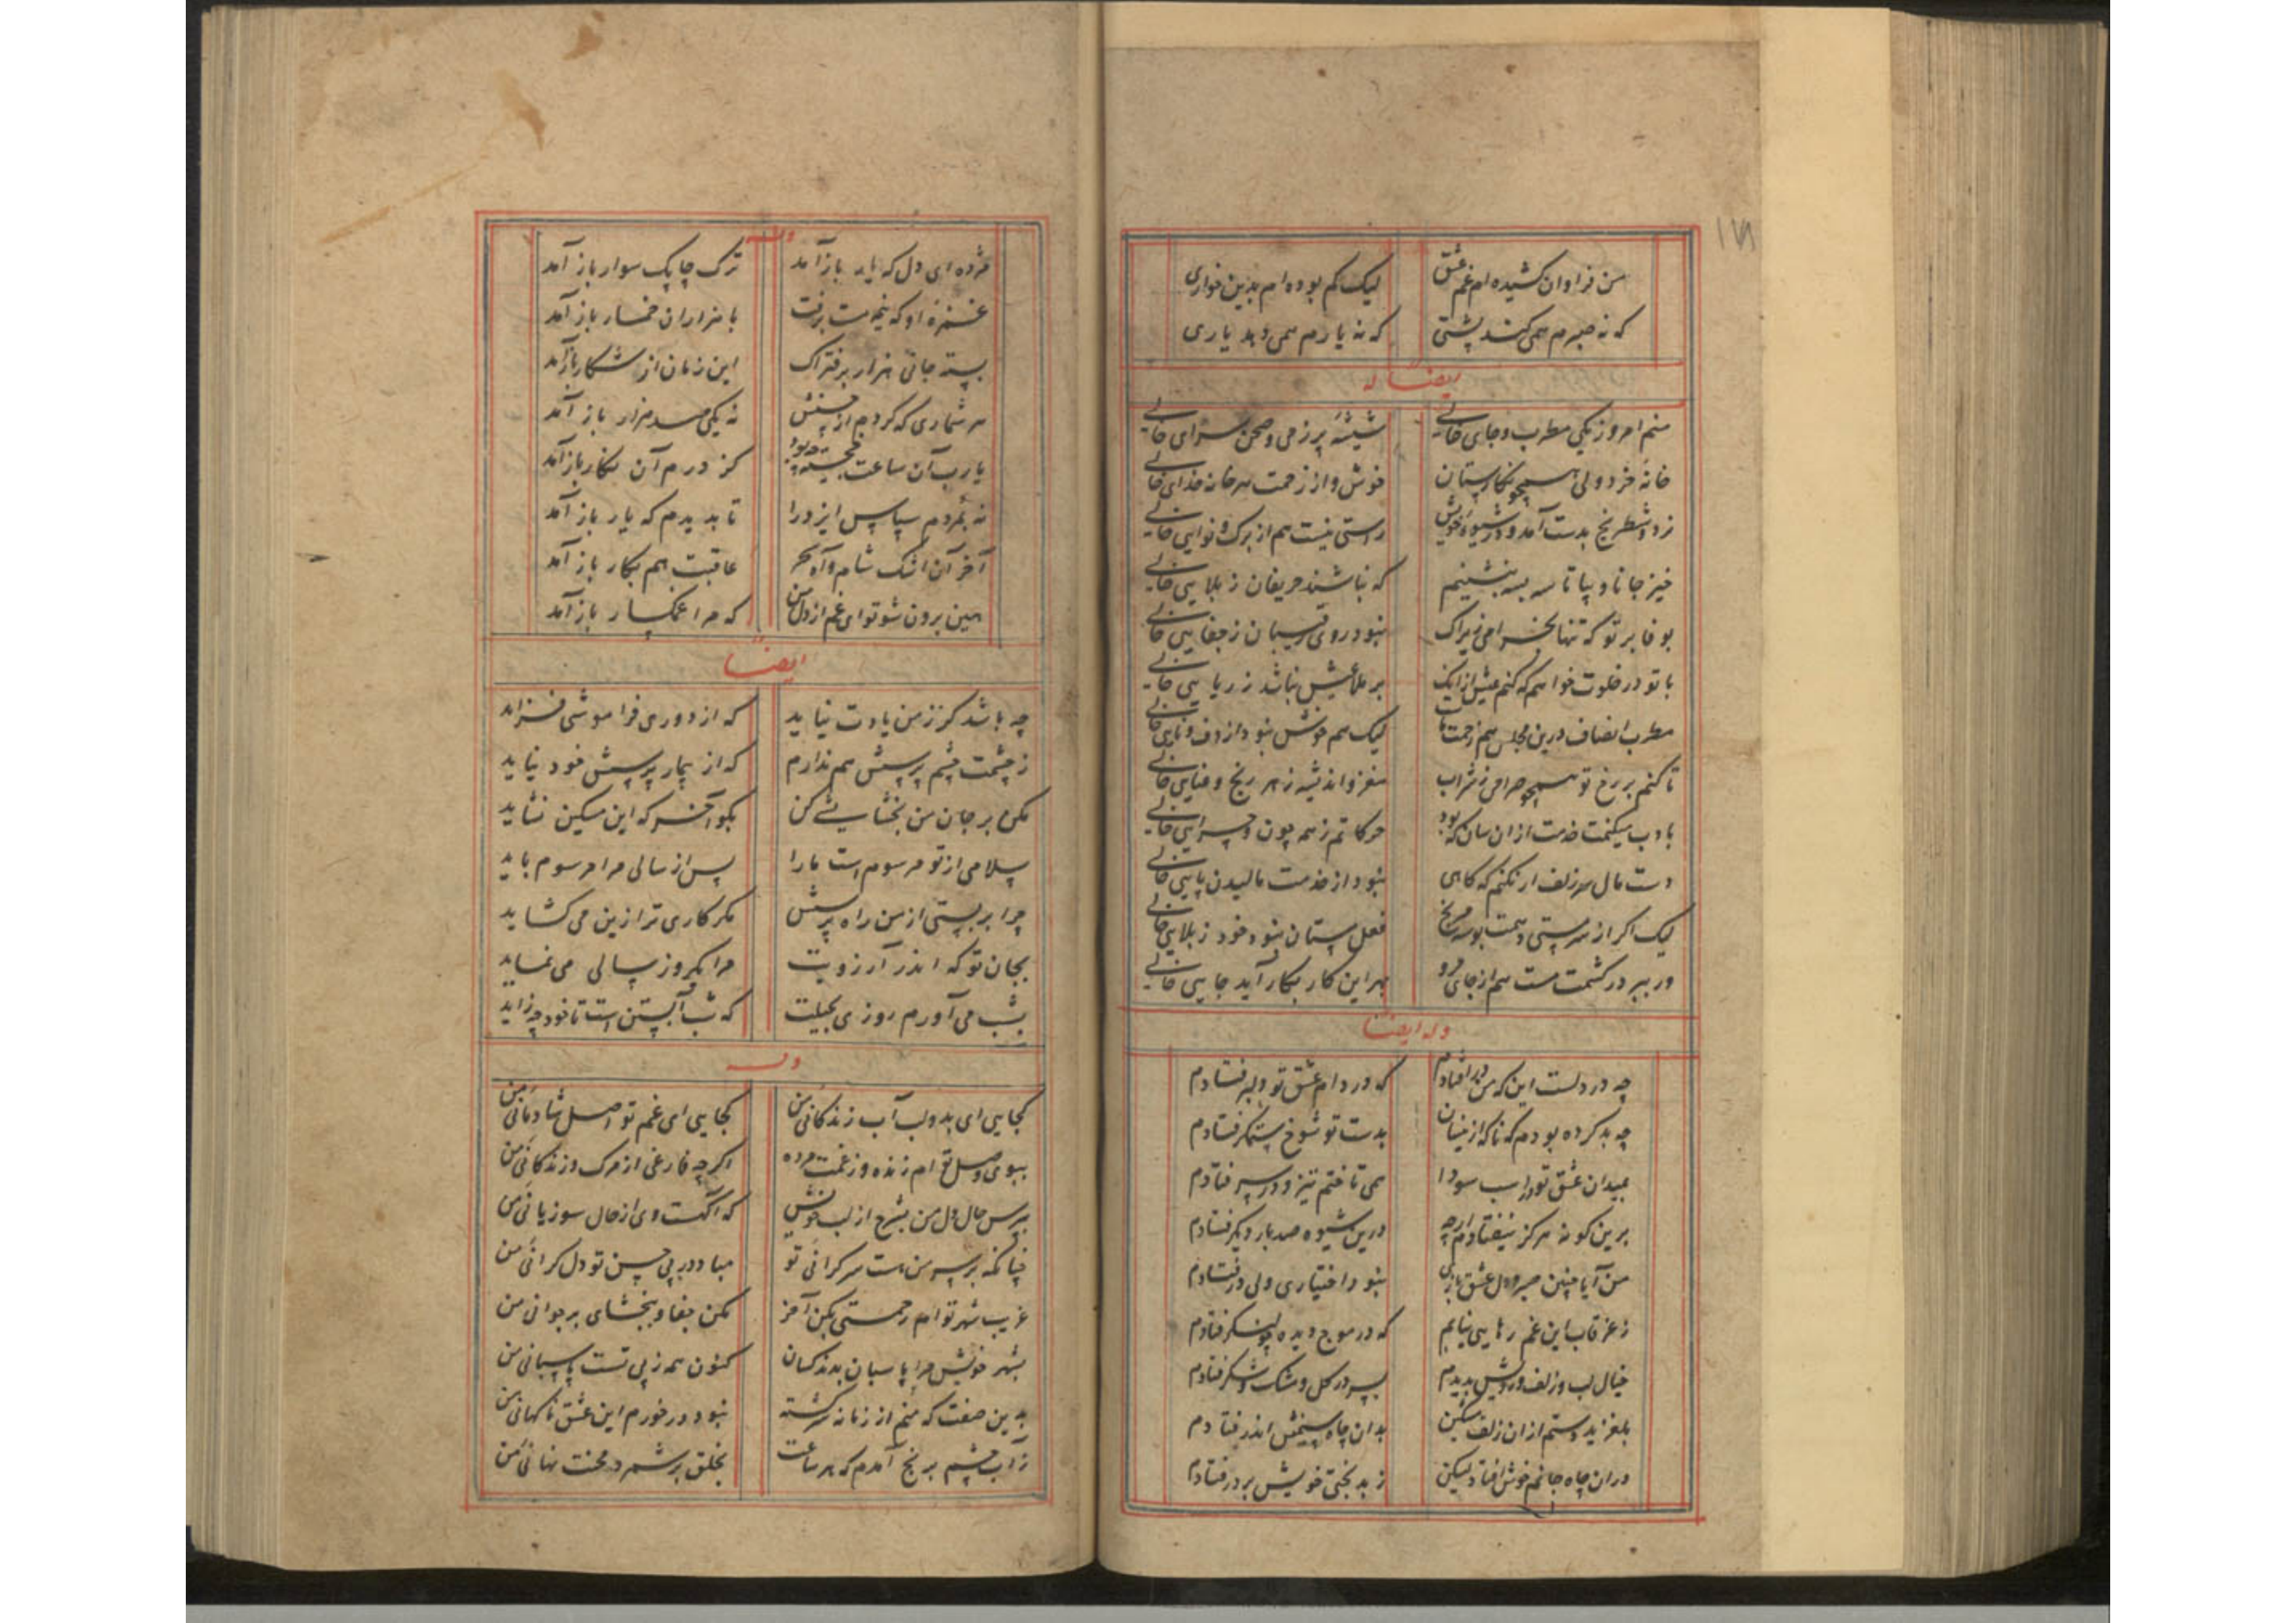 ۱۷۱
من فراوان کشیده ام غم عشق لیک کم بوده ام بدین خواری
که نه صبرم همی کند پشتی که نه یارم همی دهد یاری
ایضا له
منم امروز یکی مطرب و جای خالی شیشهٔ پر ز می و صحن سرای خالی
خانهٔ خرد ولی همچو نگارستان خوش و از زحمت هر خانه خدای خالی
نرد و شطرنج بدست آمد و در شیوه خویش راستی نیست هم از برگ و نوایی خالی
خیز جانا و بیا تا سه بسه بنشینیم که نباشند حریفان ز بلایی خالی
بوفا بر تو که تنها بخرامی زیراک نبود روی رقیبان ز جفایی خالی
با تو در خلوت خواهم که کنم عیش ازانک بر ملا عیش نباشد ز ریایی خالی
مطرب انصاف درین مجلس هم زحمت ماست لیک هم خوش نبود از دف و نایی خالی
تا کنم بر رخ تو همچو صراحی ز شراب مغز و اندیشه ز هر رنج و عنایی خالی
با دب میکنمت خدمت ازان سان که بود حرکاتم ز همه چون و چرایی خالی
دست مال سر زلف ار نکنم که گاهی نبود از خدمت مالیدن پایی خالی
لیک اگر از سر پستی دهمت بوسه مرنج فعل مستان نبود خود ز بلایی خالی
ور ببر در کشمت مست هم از جای مرو بهر این کار بکار آید جایی خالی
وله ایضا
چه دردلست این که من در افتادم که در دام عشق تو دلبر فتادم
چه بد کرده بودم که ناگه ازینسان بدست تو شوخ ستمگر فتادم
بمیدان عشق تو در اسب سودا همی تاختم تیز و در سر فتادم
برین گونه هرگز نیفتادم ارچه درین شیوه صد بار دیگر فتادم
من آیا چنین صبر و دل عشق بازی نبود اختیاری ولی در فتادم
ز غرقاب این غم رهایی نیابم که در موج دیده چو لنگر فتادم
خیال لب و زلف و رویش بدیدم بسر در گل و مشک و شکر فتادم
بلغزید دستم ازان زلف مشکین بدان چاه سیمینش اندر فتادم
دران چاه جانم خوش افتاد لیکن ز بدبختی خویش بر در فتادم
وله
مژده ای دل که یار باز آمد ترک چابک سوار باز آمد
غمزه او که نیم مست برفت با هزاران خمار باز آمد
بسته جانی هزار بر فتراک این زمان از شکار باز آمد
هر شماری که کردم از حسنش نه یکی صد هزار باز آمد
یارب آن ساعت خجسته چه بود کز درم آن نگار باز آمد
نه بمردم سپاس ایزد را تا بدیدم که یار باز آمد
آخر آن اشک شام و آه سحر عاقبت هم بکار باز آمد
هین برون شو تو ای غم از دل من که مرا غمگسار باز آمد
ایضا
چه باشد گر ز من یادت نیاید که از دوری فراموشی فزاید
ز چشمت چشم پرسش هم ندارم که از بیمار پرسش خود نیاید
مکن بر جان من بخشایشی کن بگو آخر که این مسکین نشاید
سلامی از تو مرسومست ما را پس از سالی مرا مرسوم باید
چرا بر بستی از من راه پرسش مگر کاری ترا زین می گشاید
بجان تو که اندر آرزویت مرا یک روز سالی می نماید
بشب می آورم روزی بحیلت که شب آبستن است تا خود چه زاید
وله
کجایی ای بدو لب آب زندگانی من کجایی ای غم تو اصل شادمانی من
ببوی وصل تو ام زنده وز غمت مرده اگر چه فارغی از مرگ و زندگانی من
بپرس حال دل من بشرح از لب خویش که آگهست وی از حال سوزیانی من
چنانکه بر سر من هست سر گرانی تو مبادا در پی حسن تو دل گرانی من
غریب شهر تو ام رحمتی بکن آخر مکن جفا و ببخشای بر جوانی من
بشهر خویش مرا پاسبان بدند کسان کنون همه ز پی تست پاسبانی من
بدین صفت که منم از زمانه سرگشته نبود در خورم این عشق ناگهانی من
ز آب چشم برنج آمدم که هر ساعت بخلق بر شمرد محنت نهانی من